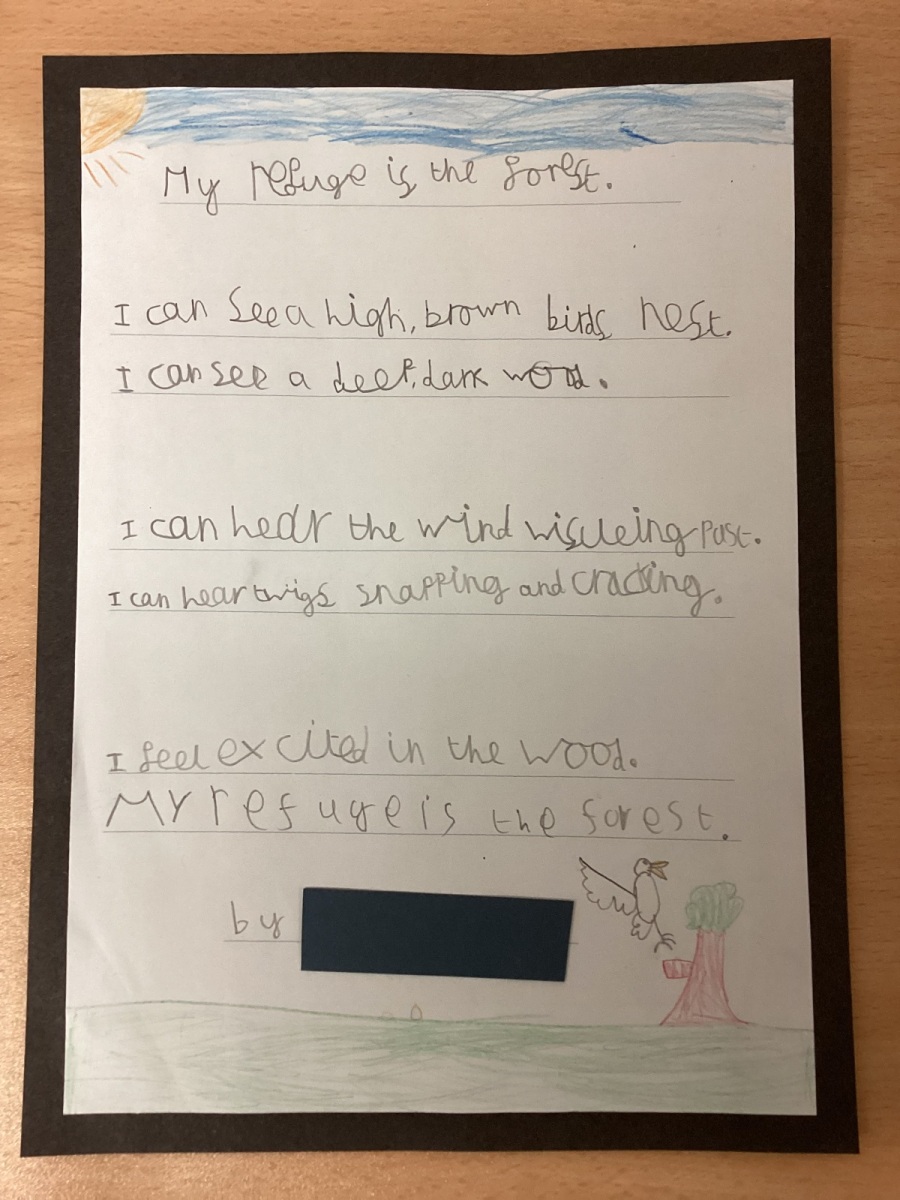 My refuge is the forest.
I can see a high, brown birds nest.
I can see a deep, dark wood.
I can hear the wind wisueing past.
I can hear twigs snapping and cracking.
I feel excited in the wood.
My refuge is the forest.
by